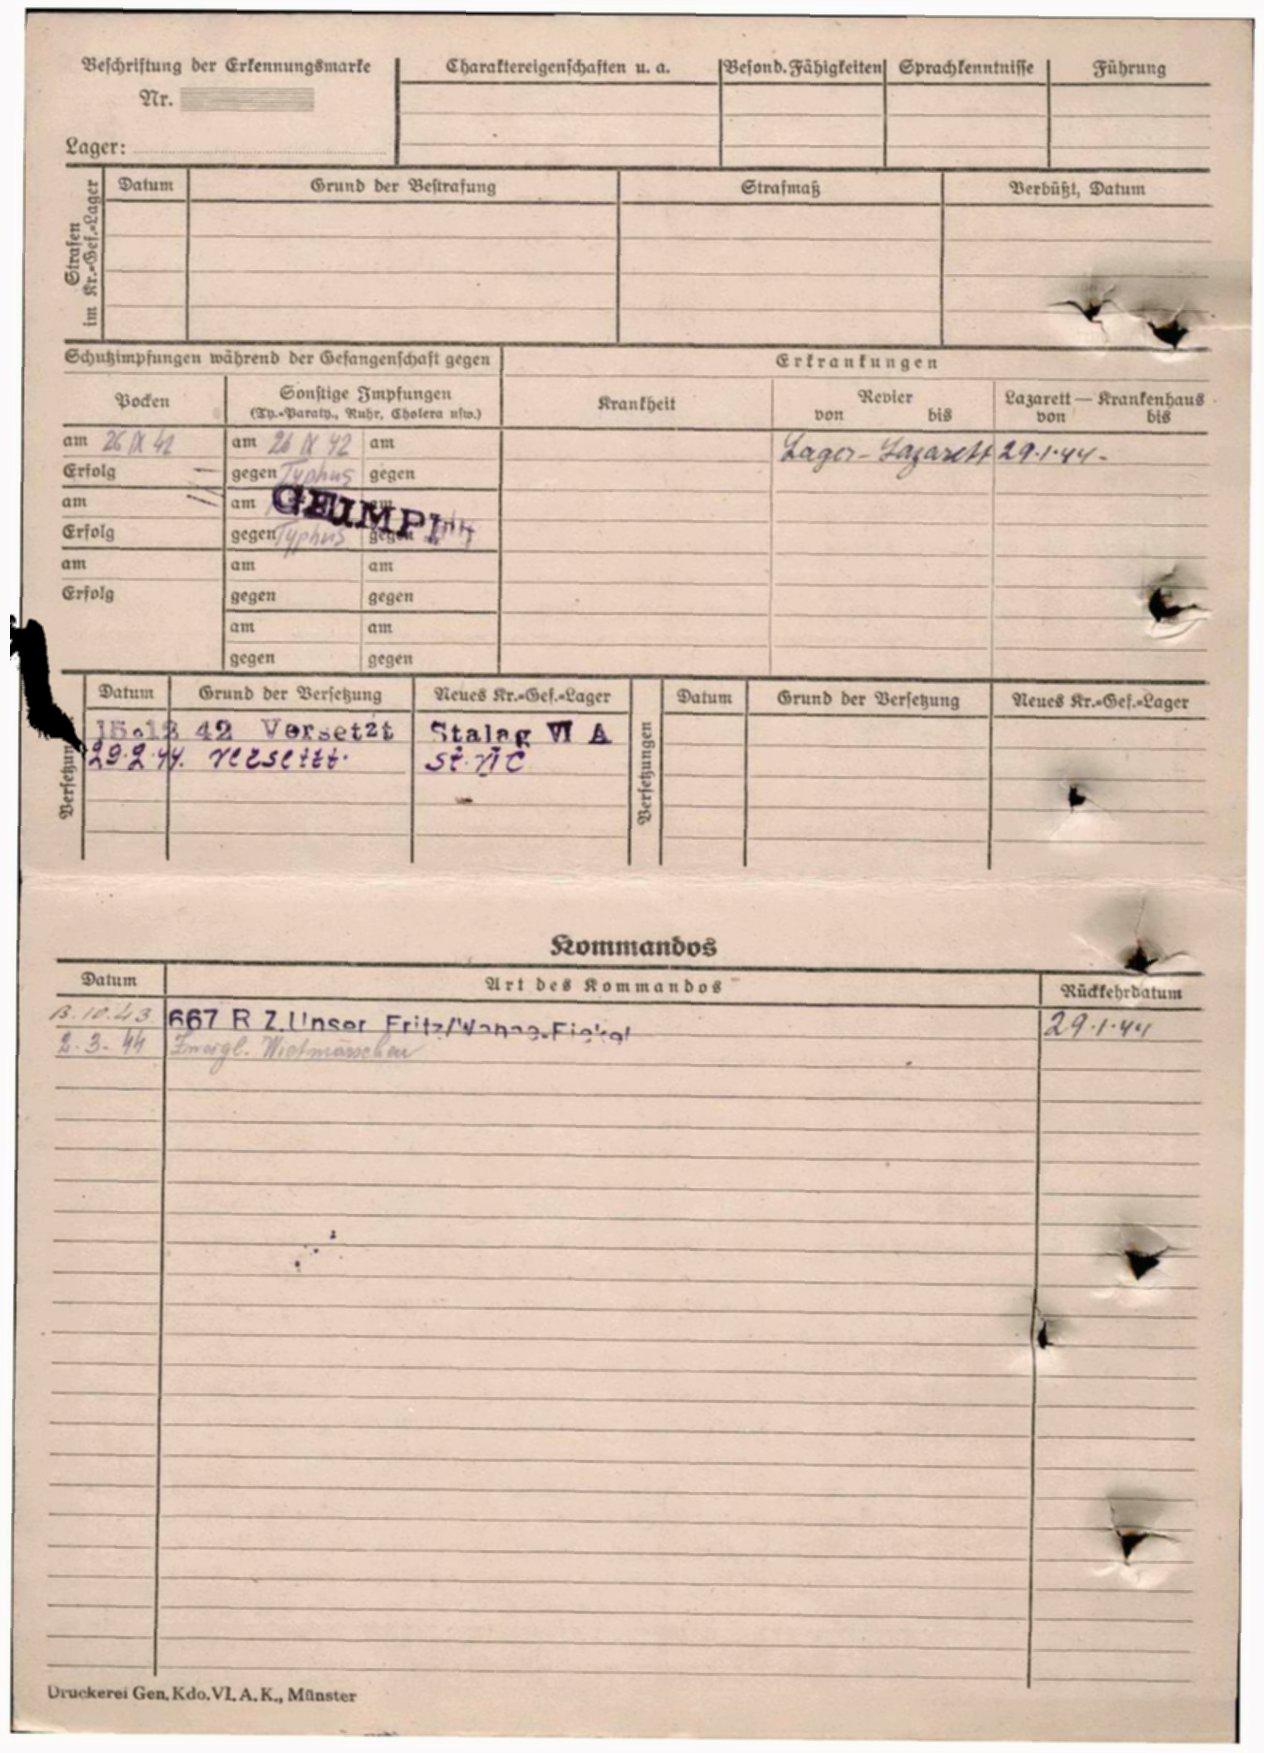 Beschriftung der Erkennungsmarke
Nr.
Lager:
Charaktereigenschaften u. a.
Besond. Fähigkeiten
Sprachkenntnisse
Führung
Strafen im Kr.=Gef.=Lager
Datum
Grund der Bestrafung
Strafmaß
Verbüßt, Datum
Schutzimpfungen während der Gefangenschaft gegen
Erkrankungen
Pocken
Sonstige Impfungen
(Ty.=Paraty., Ruhr, Cholera usw.)
Krankheit
Revier
von bis
Lazarett — Krankenhaus
von bis
am 26 IX 42 am 26 IX 42 am
Lager-Lazarett 29.1.44-
Erfolg gegen Typhus gegen
am am am
GEIMPFT
Erfolg gegen Typhus gegen
am am am
Erfolg gegen gegen
am am
gegen gegen
Versetzungen
Datum Grund der Versetzung Neues Kr.=Gef.=Lager
15.12 42 Versetzt Stalag VI A
29.2.44. versetzt. St. VI C
Versetzungen
Datum Grund der Versetzung Neues Kr.=Gef.=Lager
Kommandos
Datum Art des Kommandos Rückkehrdatum
13.10.43 667 R Z.Unser Fritz/Wanne-Eickel 29.1.44
2.3.44 Zweigl. Wietmarschen
Druckerei Gen. Kdo. VI. A. K., Münster